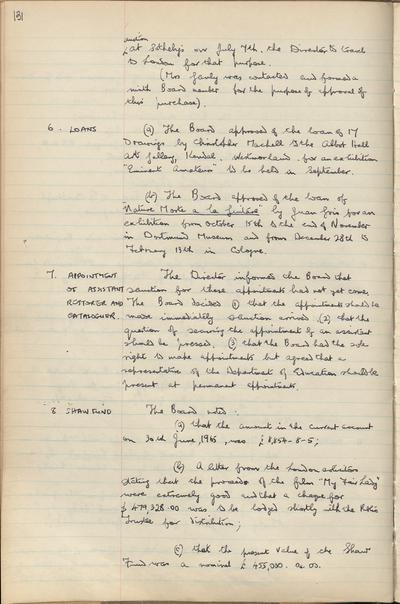 131
auction
at Sotheby's on July 7th. the Director to travel
to London for that purpose.
(Mrs. was contacted and formed a
ninth Board member for the purpose of approval of
this purchase).
6. LOANS (a) The Board approved of the loan of 17
Drawings by Christopher Machell to the Abbot Hall
Art Gallery, Kendal, Westmorland for an exhibition
"Eminent Amateurs" to be held in September.
(b) The Board approved of the loan of
"Nature Morte a la" by Juan Gris for an
exhibition from October 15th to the end of November
in Dortmund Museum and from December 28th to
February 13th in Cologne.
7. APPOINTMENT The Director informed the Board that
OF ASSISTANT sanction for these appointments had not yet come.
RESTORER AND The Board decided (1) that the appointments should be
CATALOGUER. made immediately sanction arrived (2) that the
question of securing the appointment of an assistant
should be pressed. (3) that the Board had the sole
right to make appointments but agreed that a
representative of the Department of Education should be
present at permanent appointments.
8 SHAW FUND The Board noted:
(a) that the amount in the current account
on 30th June, 1965, was £8,854-8-5;
(b) A letter from the London solicitors
stating that the proceeds of the film "My Fair Lady"
were extremely good and that a cheque for
£479,328.00 was to be lodged shortly with the Public
Trustee for distribution;
(c) that the present value of the Shaw
Fund was a nominal £455,000. 00. 00.